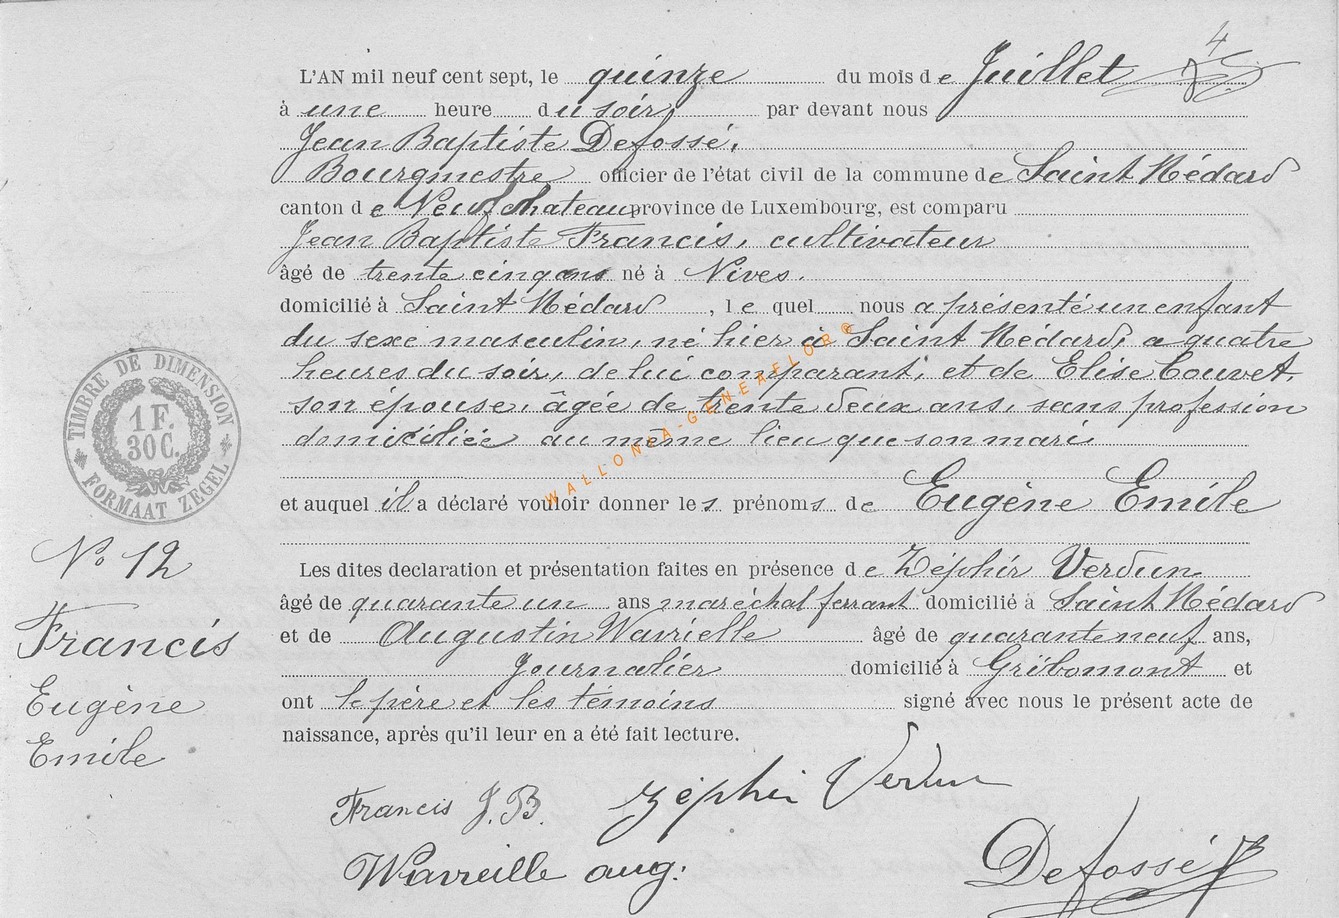 4
L'AN mil neuf cent sept, le quinze du mois de Juillet
à une heure du soir, par devant nous
Jean Baptiste Defossé,
Bourgmestre officier de l'état civil de la commune de Saint Médard
canton de Neufchateau province de Luxembourg, est comparu
Jean Baptiste Francis, cultivateur
âgé de trente cinq ans né à Nives.
domicilié à Saint Médard, lequel nous a présenté un enfant
du sexe masculin, né hier à Saint Médard, a quatre
heures du soir, de lui comparant, et de Elise Couvet,
son épouse, âgée de trente deux ans, sans profession
domiciliée au même lieu que son mari
et auquel il a déclaré vouloir donner les prénoms de Eugène Emile
Les dites declaration et présentation faites en présence de Zéphir Verdun
âgé de quarante un ans maréchal ferrant domicilié à Saint Médard
et de Augustin Wavrielle âgé de quarante neuf ans,
Journalier domicilié à Gribomont et
ont le père et les témoins signé avec nous le présent acte de
naissance, après qu'il leur en a été fait lecture.
TIMBRE DE DIMENSION
1 F.
30 C.
FORMAAT ZEGEL
No 12
Francis
Eugène
Emile
Francis J. B. Zéphir Verdun
Wavreille aug:
Defossé
WALLONIA-GENEAFLOR@